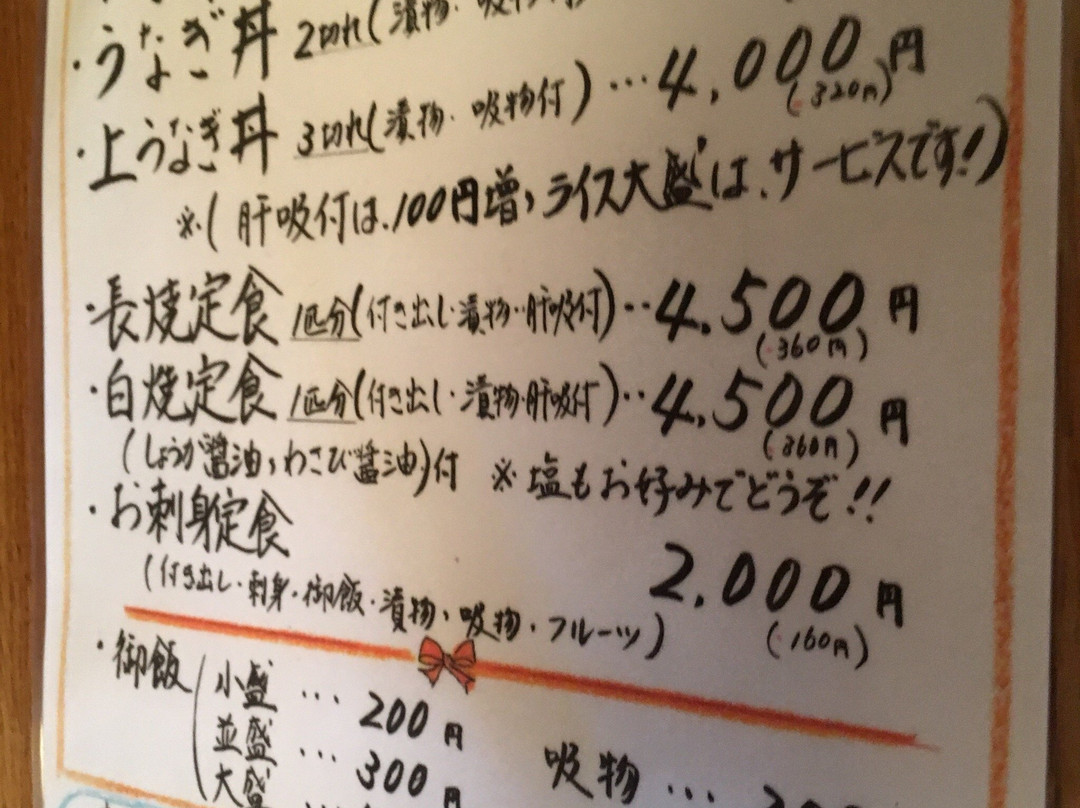 ・うなぎ丼 2切れ(漬物・吸物
・上うなぎ丼 3切れ(漬物・吸物付)…4,000円
(320円)
※(肝吸付は、100円増、ライス大盛は、サービスです!)
・長焼定食 1匹分(付き出し・漬物・肝吸付)…4,500円
(360円)
・白焼定食 1匹分(付き出し・漬物・肝吸付)…4,500円
(360円)
(しょうが醤油、わさび醤油)付 ※塩もお好みでどうぞ!!
・お刺身定食
2,000円
(160円)
(付き出し・刺身・御飯・漬物・吸物・フルーツ)
・御飯
小盛…200円
並盛…300円
大盛
吸物…